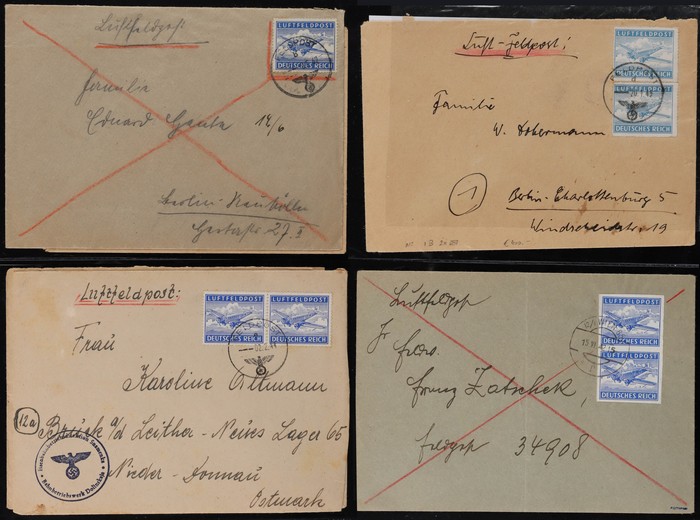 Luftfeldpost
LUFTFELDPOST
DEUTSCHES REICH
FELDPOST
Familie
Eduard
12/6
Berlin-Neukölln
27. I
Luft-Feldpost!
DEUTSCHES REICH
DEUTSCHES REICH
Familie
W. Dobermann
1
Berlin-Charlottenburg 5
Windscheidstr. 19
Luftfeldpost:
LUFTFELDPOST LUFTFELDPOST
DEUTSCHES REICH DEUTSCHES REICH
Frau
Karoline Ottmann
12a
Bruck a/d Leitha - Neues Lager 65
Nieder-Donau
Ostmark
Luftfeldpost
LUFTFELDPOST
DEUTSCHES REICH
LUFTFELDPOST
DEUTSCHES REICH
Franz Zatschek,
Feldpost 34908